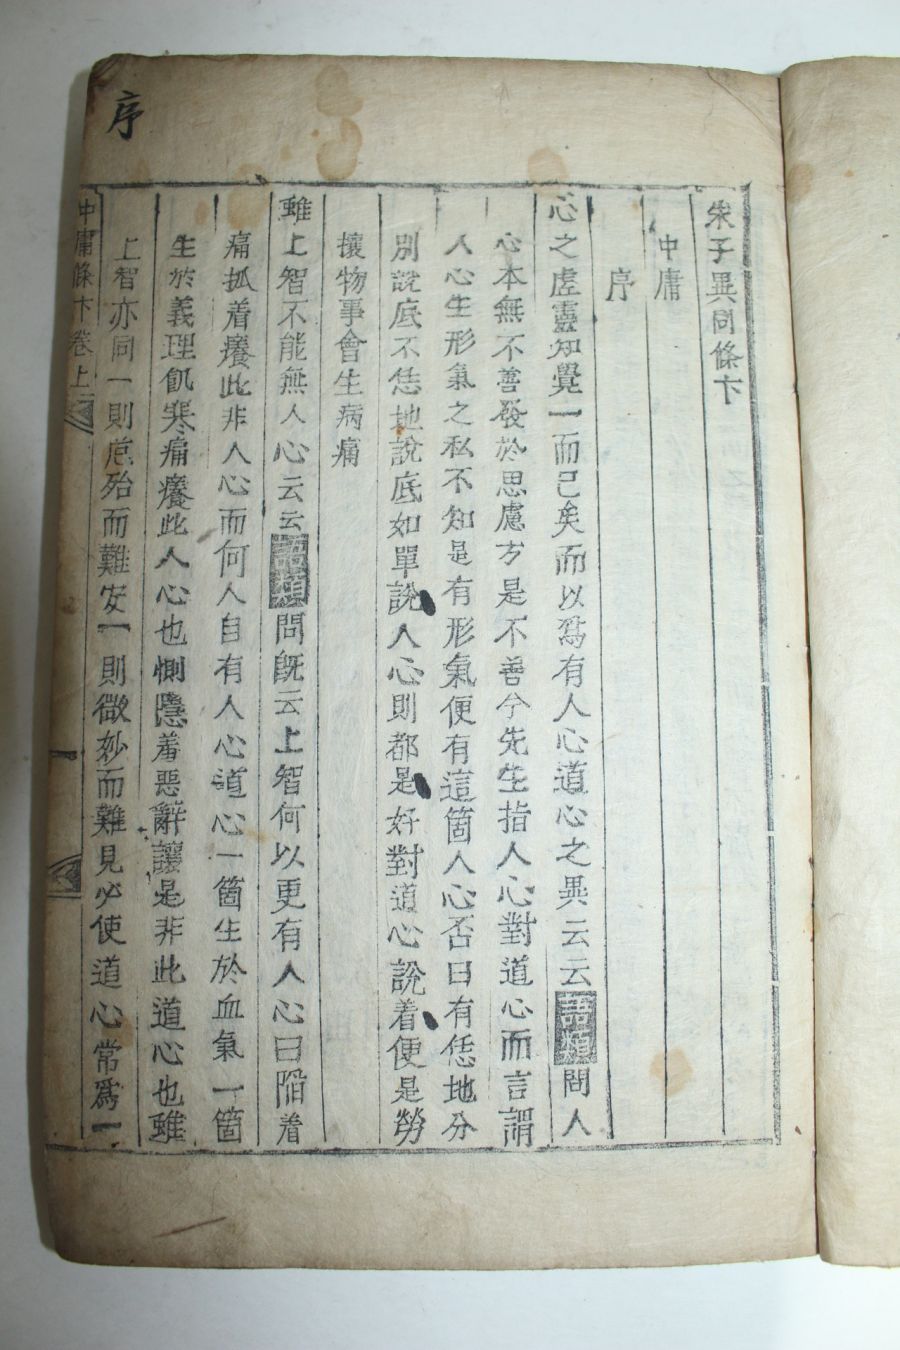 序
朱子異同條卞
中庸
序
心之虛靈知覺一而已矣而以爲有人心道心之異云云語類問人
心本無不善發於思慮方是不善今先生指人心對道心而言謂
人心生形氣之私不知是有形氣便有這箇人心否曰有恁地分
別說底不恁地說底如單說人心則都是好對道心說着便是勞
攘物事會生病痛
雖上智不能無人心云云語類問旣云上智何以更有人心曰掐着
痛抓着癢此非人心而何人自有人心道心一箇生於血氣一箇
生於義理飢寒痛癢此人心也惻隱羞惡辭讓是非此道心也雖
上智亦同一則危殆而難安一則微妙而難見必使道心常爲一
中庸條卞卷上
一